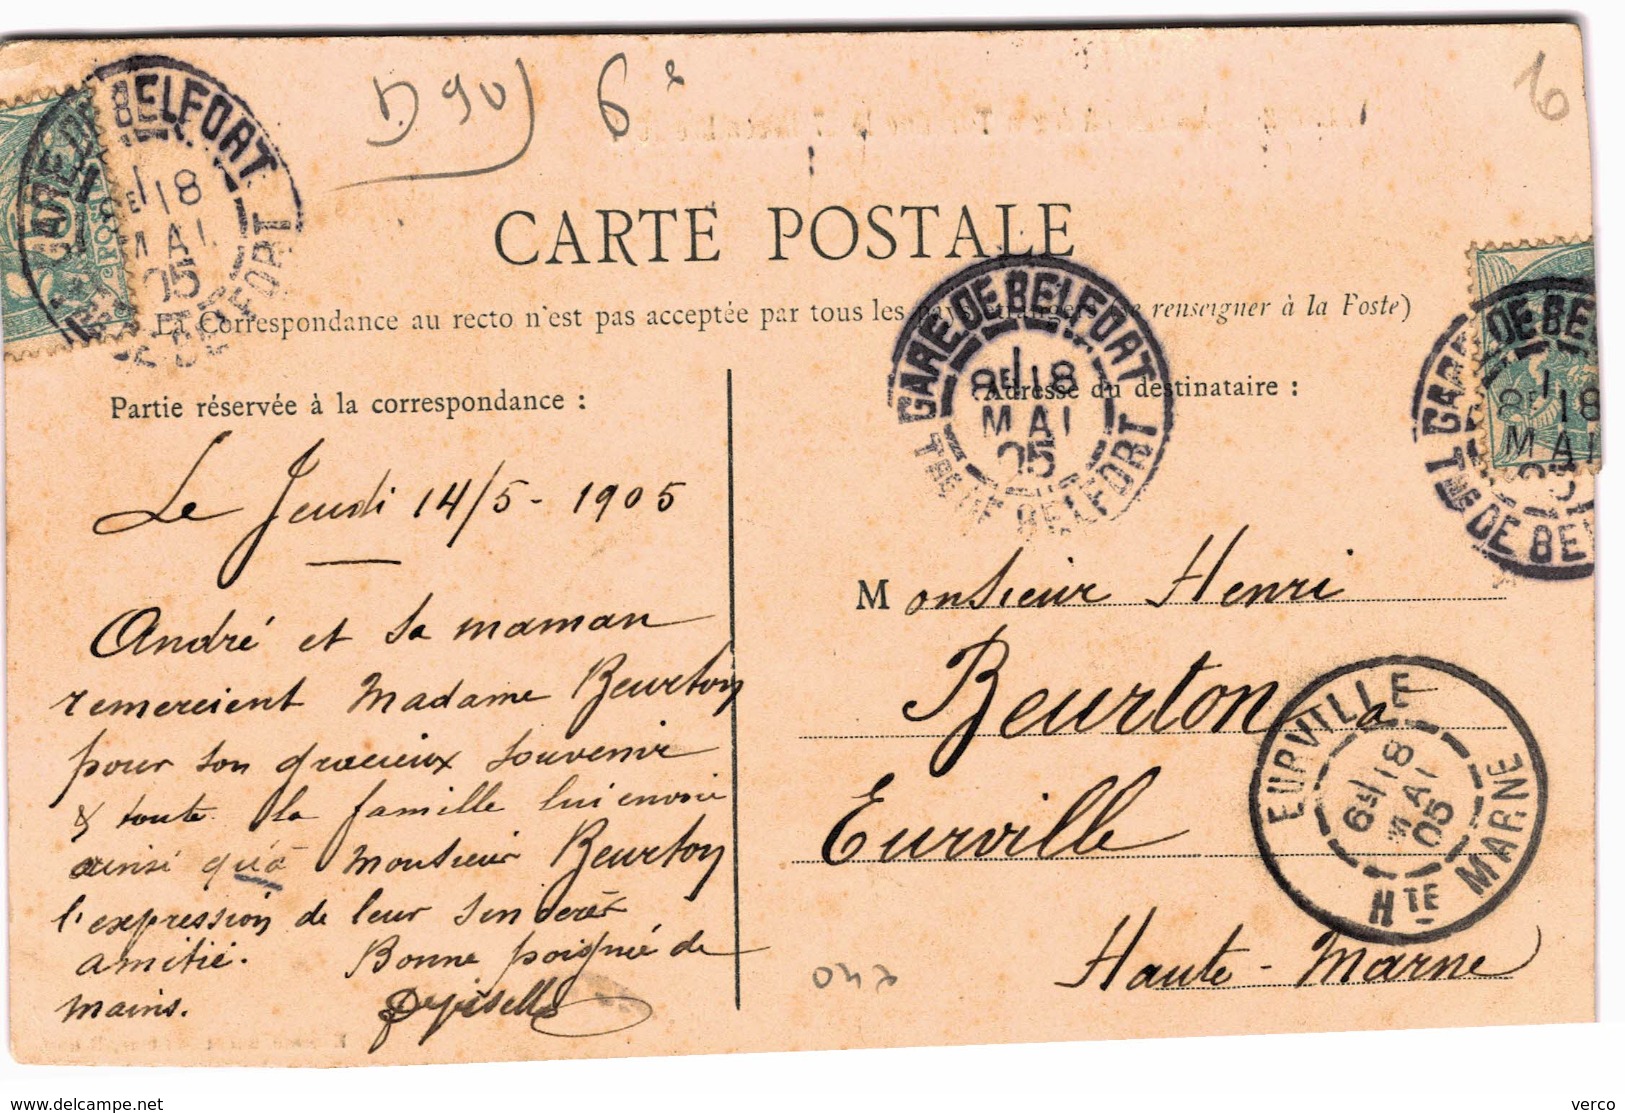 D 90) 6e
CARTE POSTALE
La Correspondance au recto n'est pas acceptée par tous les pays étrangers (se renseigner à la Poste)
GARE DE BELFORT
TRE DE BELFORT
8E 18
MAI
05
GARE DE BELFORT
TRE DE BELFORT
8E 18
MAI
05
GARE DE BEL
TRE DE BEL
8E 18
MAI
05
Partie réservée à la correspondance :
Le Jeudi 14/5 - 1905
André et sa maman
remercient Madame Beurton
pour son gracieux souvenir
& toute la famille lui envoie
ainsi qu'à Monsieur Beurton
l'expression de leur sincère
amitié. Bonne poignée de
mains.
Adresse du destinataire :
Monsieur Henri
Beurton à
Eurville
Haute-Marne
EURVILLE
HTE MARNE
6E 18
MAI
05
240
delcampe.net
verco